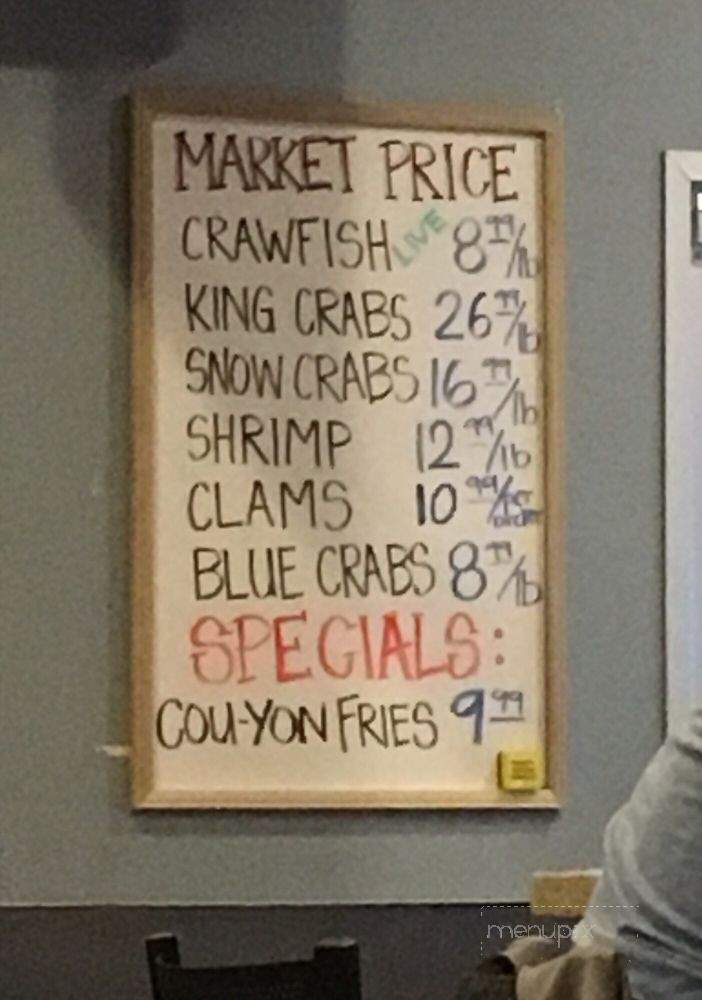 MARKET PRICE
CRAWFISH LIVE 8.99/lb
KING CRABS 26.99/lb
SNOW CRABS 16.99/lb
SHRIMP 12.99/lb
CLAMS 10.99/per order
BLUE CRABS 8.99/lb
SPECIALS:
COU-YON FRIES 9.99
menupix